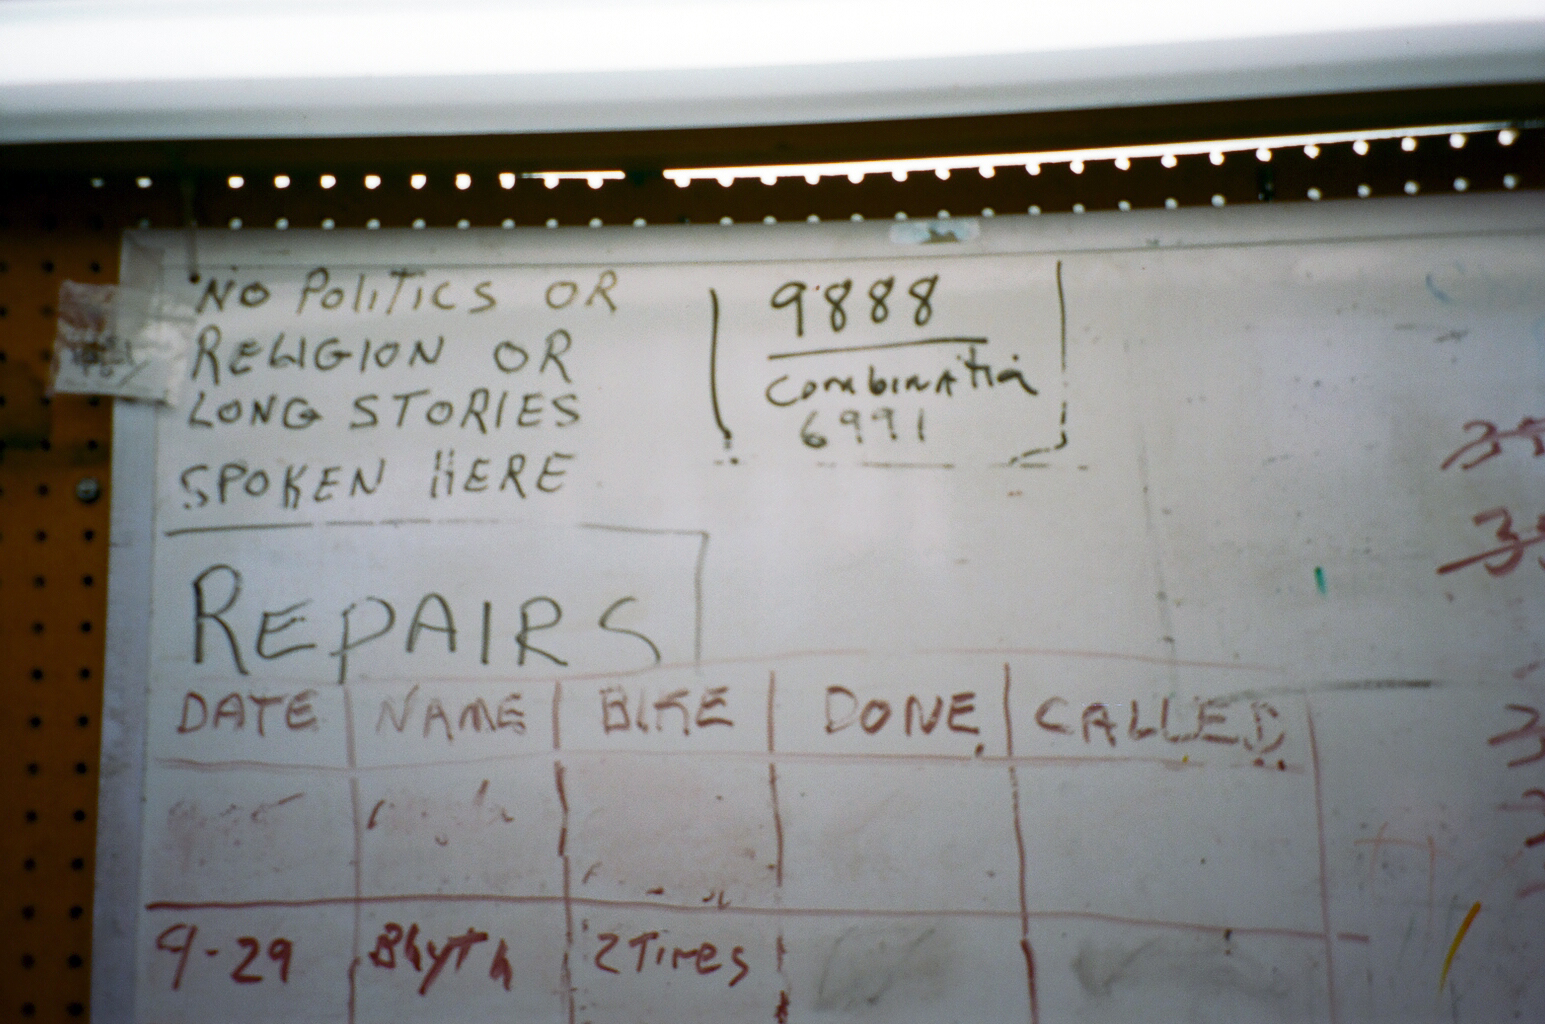 NO POLITICS OR
RELIGION OR
LONG STORIES
SPOKEN HERE
9888
Combination
6991
REPAIRS
DATE NAME BIKE DONE CALLED
9-29 Blyth 2 Tires